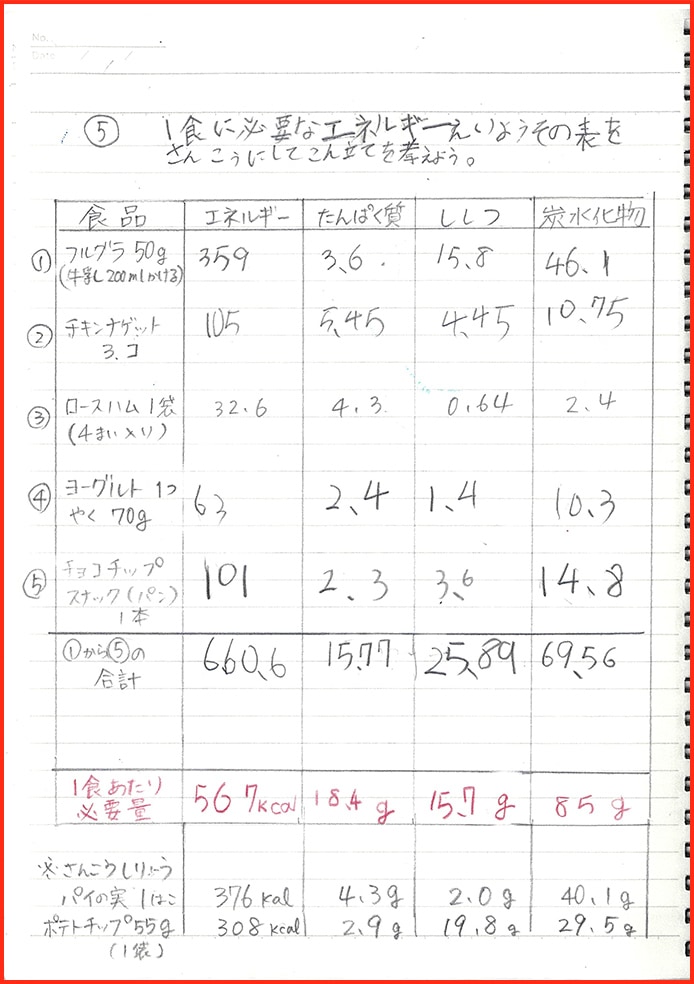 No.
Date
⑤ 1食に必要なエネルギーえいようその表を
さんこうにしてこん立てを考えよう。
食品 エネルギー たんぱく質 ししつ 炭水化物
① フルグラ 50g 359 3.6 15.8 46.1
(牛乳し200mlかける)
② チキンナゲット 105 5.45 4.45 10.75
3.コ
③ ロースハム1袋 32.6 4.3 0.64 2.4
(4まい入り)
④ ヨーグルト 1つ 63 2.4 1.4 10.3
やく 70g
⑤ チョコチップ 101 2.3 3.6 14.8
スナック(パン)
1本
①から⑤の 660.6 15.77 25.89 69.56
合計
1食あたり 567kcal 18.4g 15.7g 85g
必要量
※さんこうしりょう
パイの実 1はこ 376kal 4.3g 2.0g 40.1g
ポテトチップ55g 308kcal 2.9g 19.8g 29.5g
(1袋)